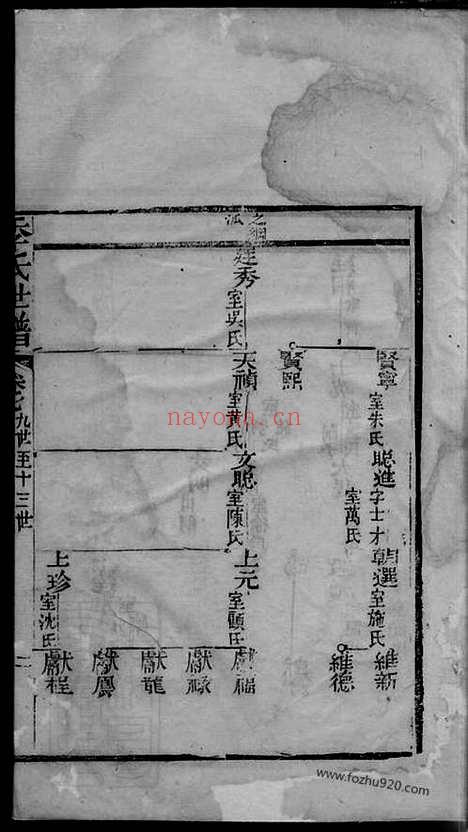 賢寧 室朱氏
聰進 字士才 室萬氏
朝選 室施氏
維新
維德
賢熙
之絅派
廷秀 室吳氏
天禎 室黃氏
文聰 室陳氏
上元 室顧氏
獻福
獻祿
獻龍
獻鳳
上珍 室沈氏
獻程
氏世譜 卷七 九世至十三世
nayona.cn
www.fozhu920.com